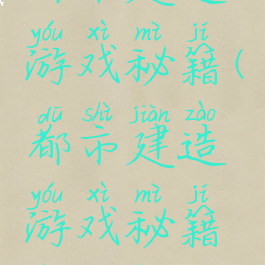 yóu xì mì jí
游戏秘籍(
dū shì jiàn zào
都市建造
yóu xì mì jí
游戏秘籍